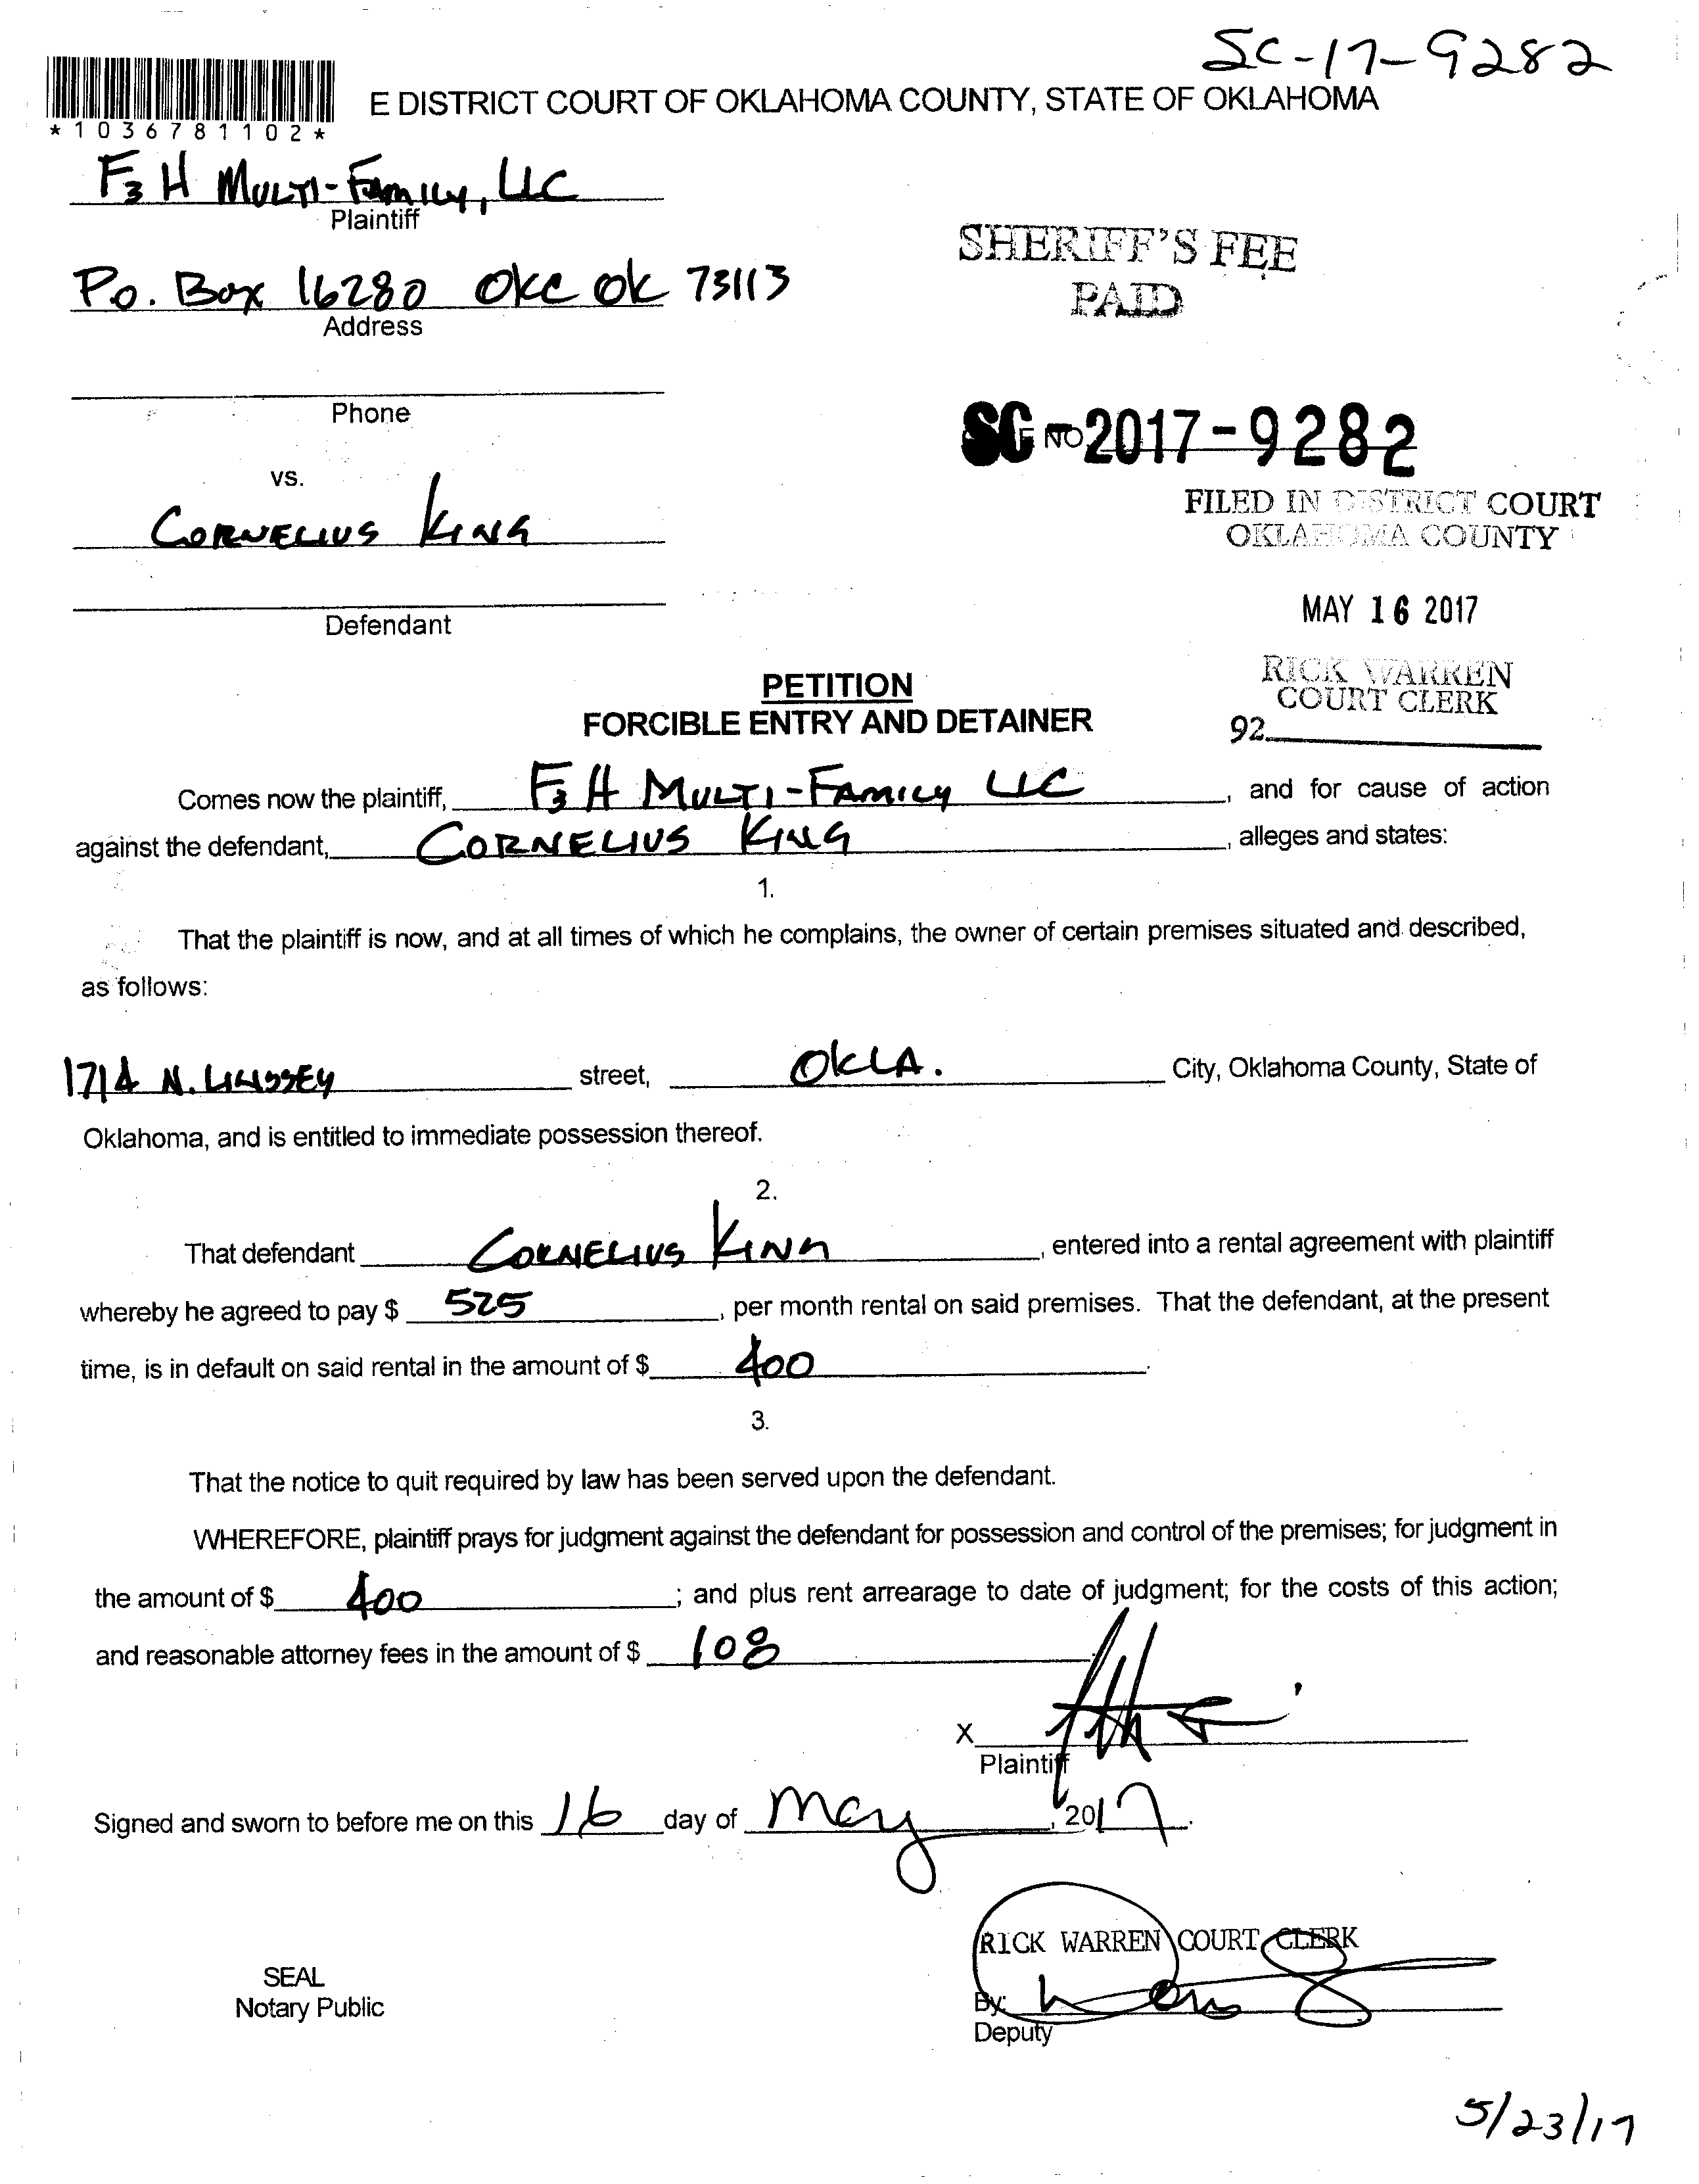 SC-17-9282
E DISTRICT COURT OF OKLAHOMA COUNTY, STATE OF OKLAHOMA
*1036781102*
F3 H MULTI-FAMILY, LLC
Plaintiff
SHERIFF'S FEE
PAID
P.O. Box 16280 OKC OK 73113
Address
Phone
SC NO 2017-9282
vs.
FILED IN DISTRICT COURT
OKLAHOMA COUNTY
CORNELIUS KING
Defendant
MAY 16 2017
RICK WARREN
COURT CLERK
92
PETITION
FORCIBLE ENTRY AND DETAINER
Comes now the plaintiff, F3 H MULTI-FAMILY LLC, and for cause of action
against the defendant, CORNELIUS KING, alleges and states:
1.
That the plaintiff is now, and at all times of which he complains, the owner of certain premises situated and described,
as follows:
1714 N. street, OKLA. City, Oklahoma County, State of
Oklahoma, and is entitled to immediate possession thereof.
2.
That defendant CORNELIUS KING, entered into a rental agreement with plaintiff
whereby he agreed to pay $ 525, per month rental on said premises. That the defendant, at the present
time, is in default on said rental in the amount of $ 400.
3.
That the notice to quit required by law has been served upon the defendant.
WHEREFORE, plaintiff prays for judgment against the defendant for possession and control of the premises; for judgment in
the amount of $ 400; and plus rent arrearage to date of judgment; for the costs of this action;
and reasonable attorney fees in the amount of $ 108.
X
Plaintiff
Signed and sworn to before me on this 16 day of May, 2017.
RICK WARREN COURT CLERK
SEAL
Notary Public
By:
Deputy
5/23/17